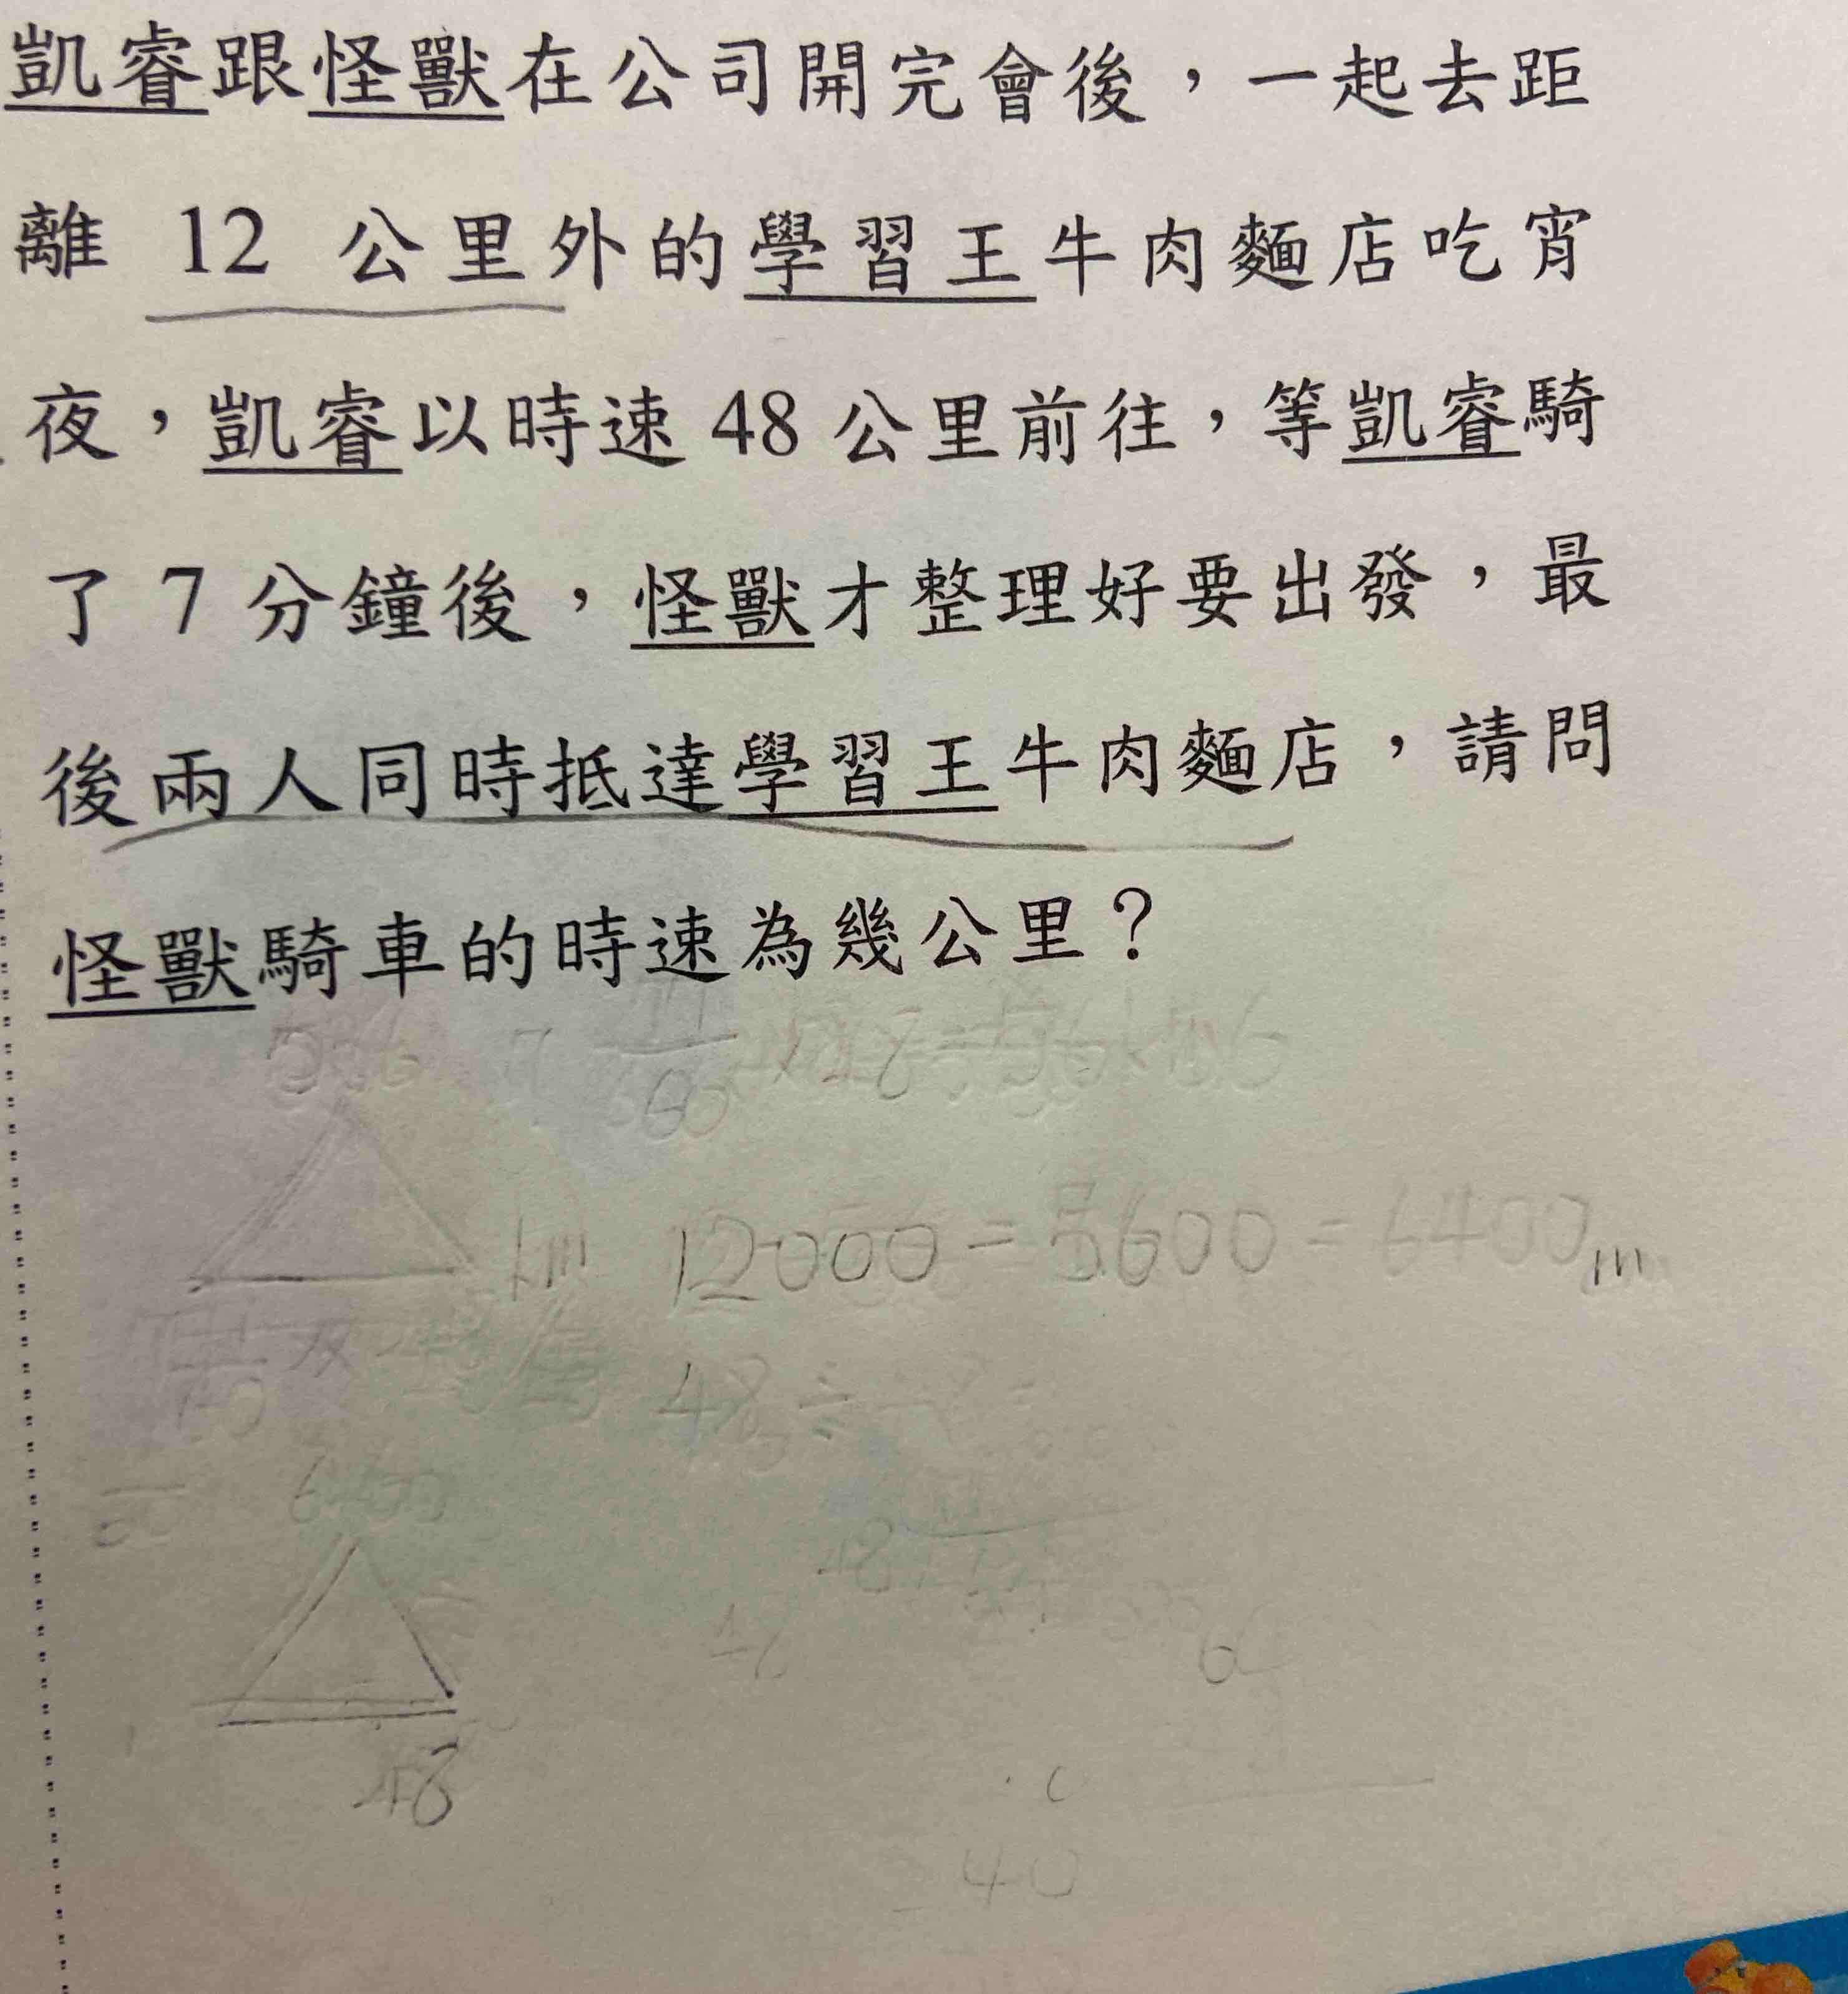 凱睿跟怪獸在公司開完會後，一起去距
離 12 公里外的學習王牛肉麵店吃宵
夜，凱睿以時速 48 公里前往，等凱睿騎
了 7 分鐘後，怪獸才整理好要出發，最
後兩人同時抵達學習王牛肉麵店，請問
怪獸騎車的時速為幾公里？
12000 = 5600 = 6400 m
48 ÷
6400
48
40